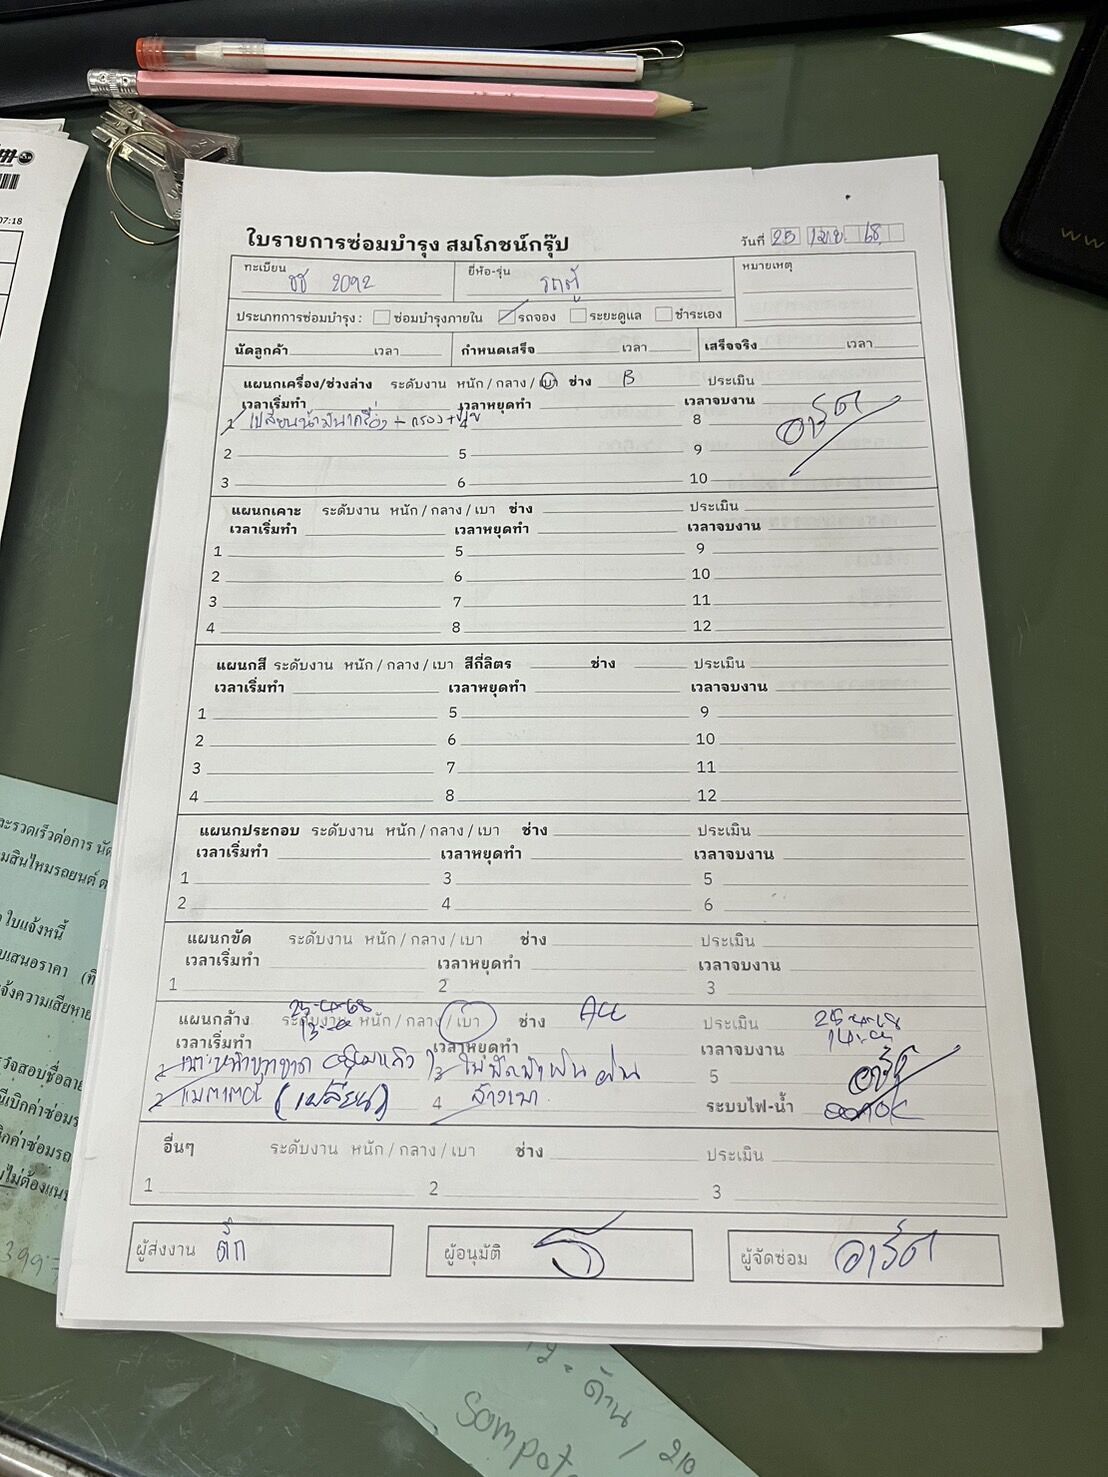 07:18
ใบรายการซ่อมบำรุง สมโภชน์กรุ๊ป
วันที่ 25 เม.ย. 68
ทะเบียน ชช 2092 ยี่ห้อ-รุ่น รถตู้ หมายเหตุ
ประเภทการซ่อมบำรุง : ซ่อมบำรุงภายใน รถจอง ระยะดูแล ชำระเอง
นัดลูกค้า เวลา กำหนดเสร็จ เวลา เสร็จจริง เวลา
แผนกเครื่อง/ช่วงล่าง ระดับงาน หนัก / กลาง / เบา ช่าง B ประเมิน
เวลาเริ่มทำ เวลาหยุดทำ เวลาจบงาน
1 เปลี่ยนน้ำมันเครื่อง + กรอง + 4 8 อาร์ต
2 5 9
3 6 10
แผนกเคาะ ระดับงาน หนัก / กลาง / เบา ช่าง ประเมิน
เวลาเริ่มทำ เวลาหยุดทำ เวลาจบงาน
1 5 9
2 6 10
3 7 11
4 8 12
แผนกสี ระดับงาน หนัก / กลาง / เบา สีกี่ลิตร ช่าง ประเมิน
เวลาเริ่มทำ เวลาหยุดทำ เวลาจบงาน
1 5 9
2 6 10
3 7 11
4 8 12
แผนกประกอบ ระดับงาน หนัก / กลาง / เบา ช่าง ประเมิน
เวลาเริ่มทำ เวลาหยุดทำ เวลาจบงาน
1 3 5
2 4 6
แผนกขัด ระดับงาน หนัก / กลาง / เบา ช่าง ประเมิน
เวลาเริ่มทำ เวลาหยุดทำ เวลาจบงาน
1 2 3
แผนกล้าง 25-4-68 ระดับงาน หนัก / กลาง / เบา ช่าง ประเมิน 25-4-68
เวลาเริ่มทำ เวลาหยุดทำ เวลาจบงาน
3 5 อาร์ต
2 แบตเตอรี่ (เปลี่ยน) 4 ล้างเบา ระบบไฟ-น้ำ
อื่นๆ ระดับงาน หนัก / กลาง / เบา ช่าง ประเมิน
1 2 3
ผู้ส่งงาน ตึ๊ก ผู้อนุมัติ ผู้จัดซ่อม อาร์ต
ใบแจ้งหนี้
399